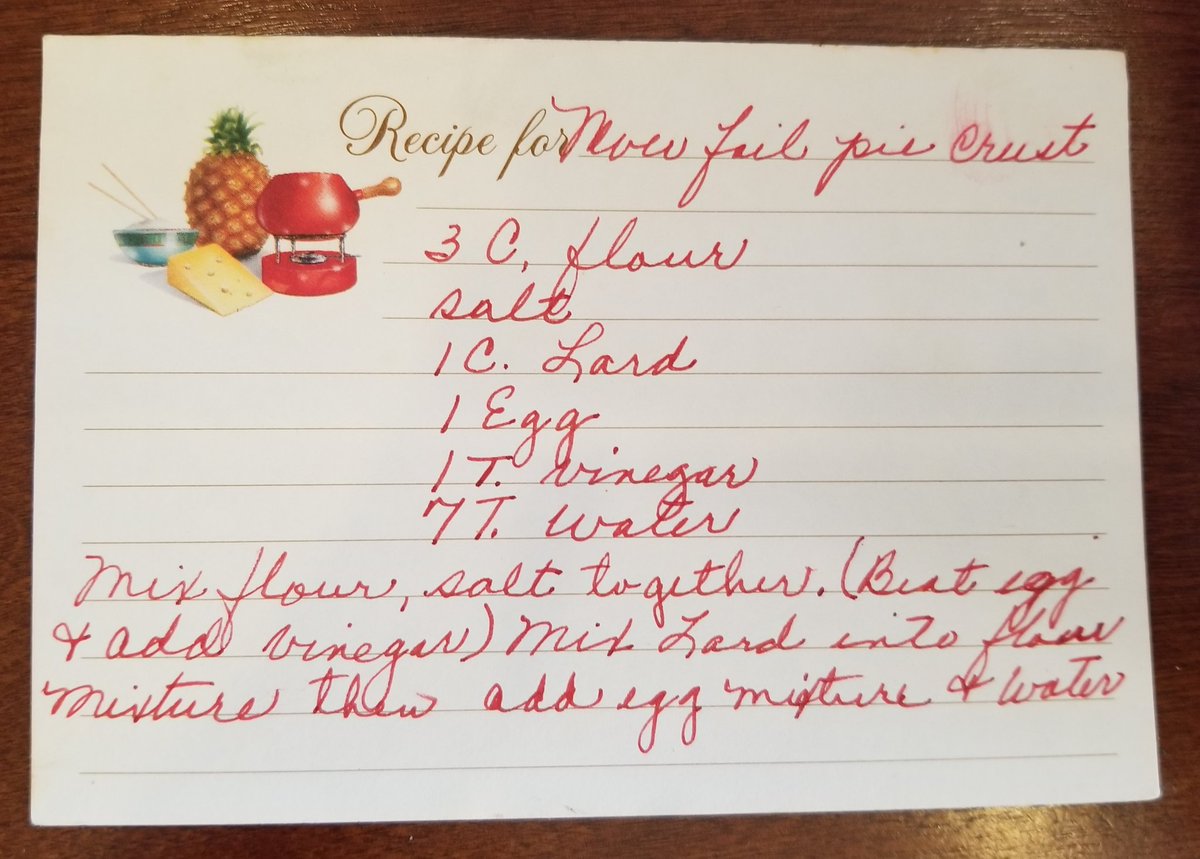 Recipe for Never fail pie crust
3 C. flour
salt
1 C. Lard
1 Egg
1 T. vinegar
7 T. water
Mix flour, salt together. (Beat egg
& add vinegar) Mix Lard into flour
mixture then add egg mixture & water